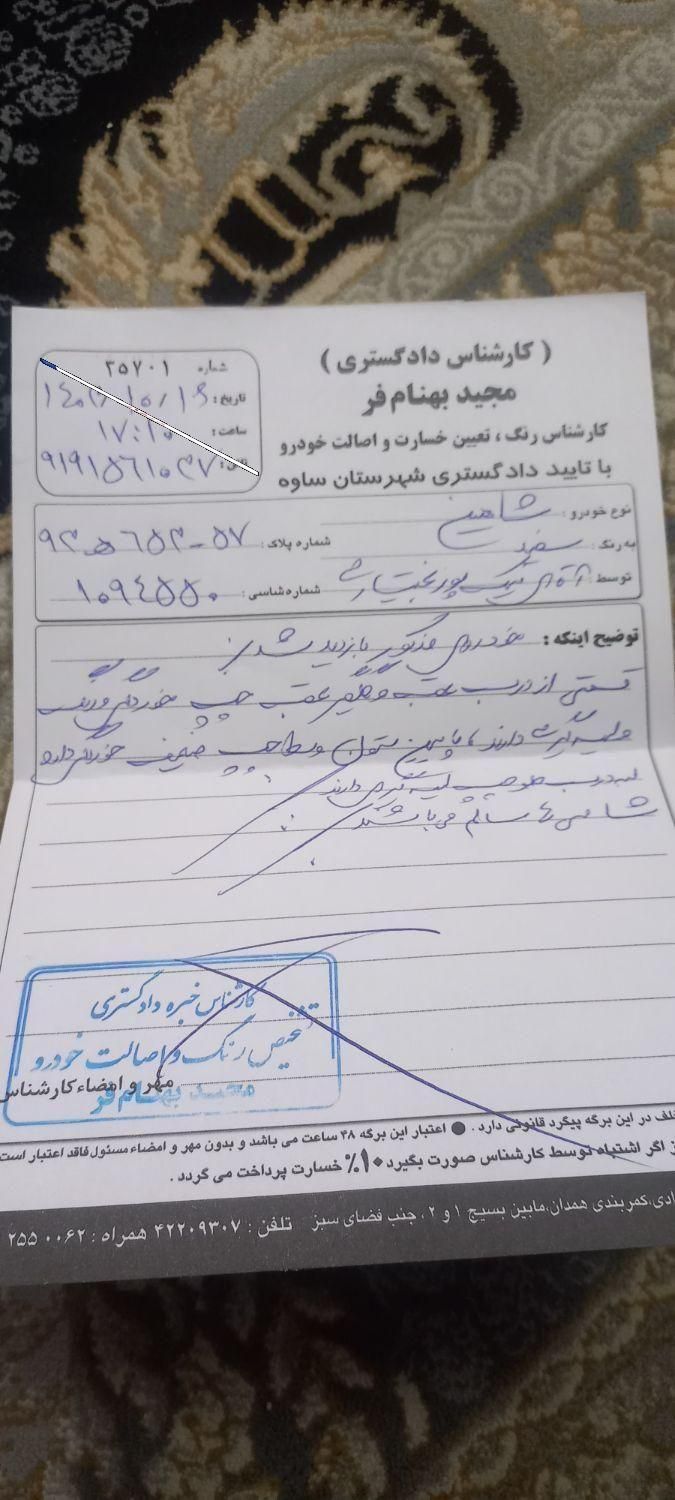 ( کارشناس دادگستری )
مجید بهنام فر
کارشناس رنگ ، تعیین خسارت و اصالت خودرو
با تایید دادگستری شهرستان ساوه
شماره ۳۵۷۰۱
تاریخ :
ساعت : ۱۷:۱۰
تلفن :
نوع خودرو : شاهین
به رنگ : سفید
شماره پلاک :
توسط : آقای نیک پور بختیاری
شماره شاسی : ۱۰۹۴۵۵۰
توضیح اینکه : خودروی مذکور بازدید شد :
قسمتی از درب عقب و گلگیر عقب چپ خوردگی و رنگ
و لیسه گیری دارند ، پایین ستون وسط چپ ضعیف خوردگی دارد
لبه درب جلو چپ لیسه گیری دارند
شاسی ها سالم می باشند
کارشناس خبره دادگستری
تشخیص رنگ و اصالت خودرو
مجید بهنام فر
مهر و امضاء کارشناس
خلف در این برگه پیگرد قانونی دارد . ● اعتبار این برگه ۴۸ ساعت می باشد و بدون مهر و امضاء مسئول فاقد اعتبار است
ز اگر اشتباه توسط کارشناس صورت بگیرد ۱۰٪ خسارت پرداخت می گردد .
ادی،کمربندی همدان،مابین بسیج ۱ و ۲ ، جنب فضای سبز تلفن : ۴۲۲۰۹۳۰۷ همراه : ۰۰۶۲ ۲۵۵